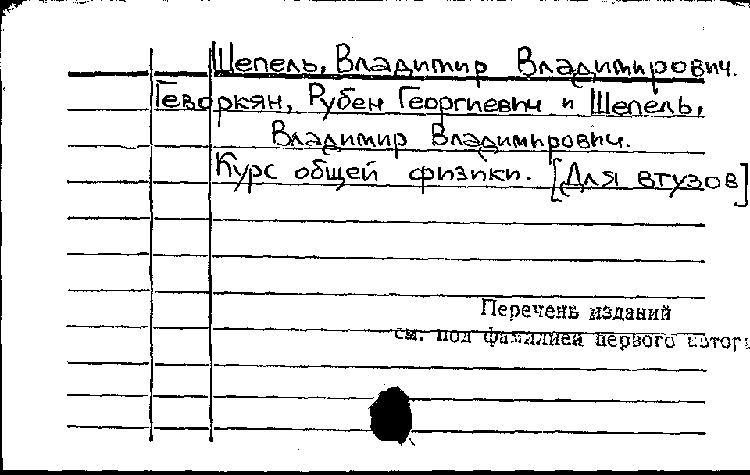 Шепель, Владимир Владимирович.
Геворкян, Рубен Георгиевич и Шепель,
Владимир Владимирович.
Курс общей физики. [Для втузов]
Перечень изданий
см. под фамилией первого автора